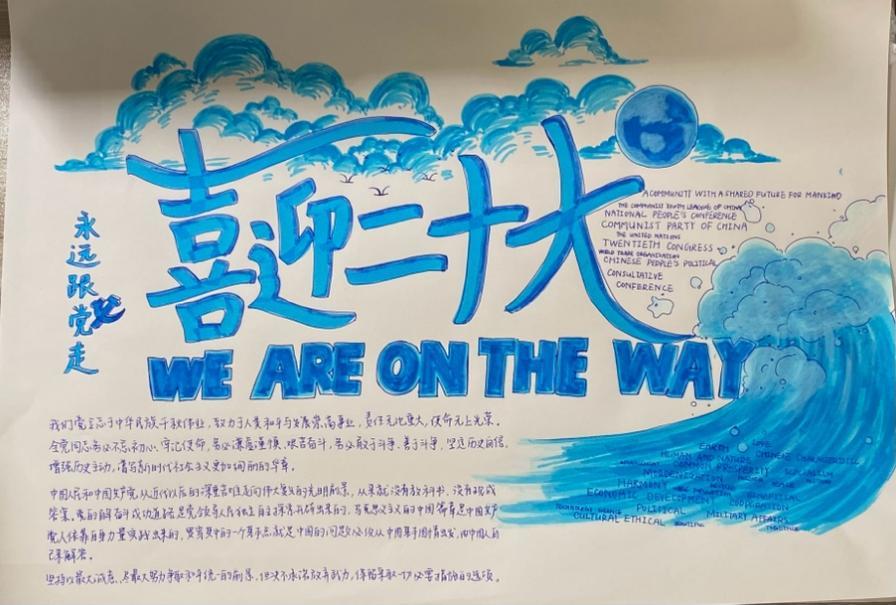 喜迎二十大
永远跟党走
A COMMUNITY WITH A SHARED FUTURE FOR MANKIND
THE COMMUNIST YOUTH LEAGUE OF CHINA
NATIONAL PEOPLE'S CONFERENCE
COMMUNIST PARTY OF CHINA
THE UNITED NATIONS
TWENTIETH CONGRESS
WORLD TRADE ORGANIZATION
CHINESE PEOPLE'S POLITICAL
CONSULTATIVE
CONFERENCE
WE ARE ON THE WAY
我们党立志于中华民族千秋伟业，致力于人类和平与发展崇高事业，责任无比重大，使命无上光荣。
全党同志务必不忘初心、牢记使命，务必谦虚谨慎、艰苦奋斗，务必敢于斗争、善于斗争，坚定历史自信，
增强历史主动，谱写新时代社会主义更加绚丽的华章。
中国人民和中国共产党从近代以后的深重苦难走向伟大复兴的光明前景，从来就没有教科书，没有现成
答案。党的百年奋斗成功道路是党领导人民独立自主探索开辟出来的，马克思主义的中国篇章是中国共产
党人依靠自身力量实践出来的，贯穿其中的一个基本点就是中国的问题必须从中国基本国情出发，由中国人自
己来解答。
坚持以最大诚意、尽最大努力争取和平统一的前景，但决不承诺放弃武力，保留采取一切必要措施的选项。
EARTH LOVE
HUMAN AND NATURE CHINESE CHARACTERISTICS
COMMON PROSPERITY SOCIALISM
MODERNIZATION
HARMONY
ECONOMIC DEVELOPMENT COOPERATION
POLITICAL MILITARY AFFAIRS
CULTURAL ETHICAL